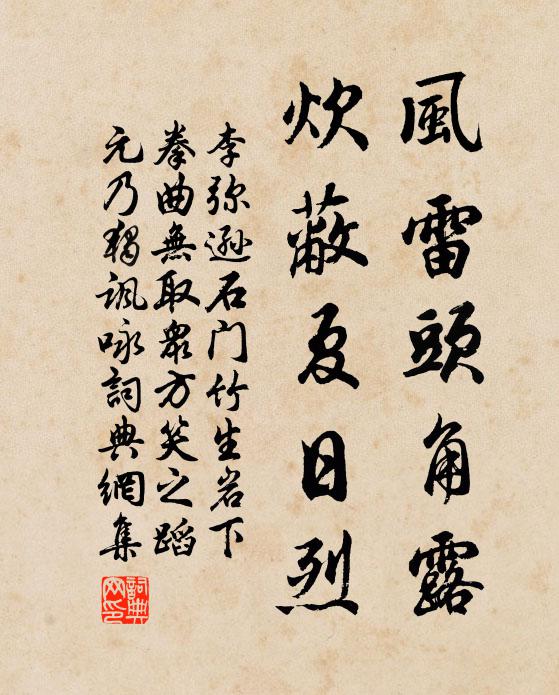 風雷頭角露
炊蔽夏日烈
李弥遜石门竹生岩下
拳曲無取眾方笑之蹈
元乃獨諷咏詞典網集
詞典
网印